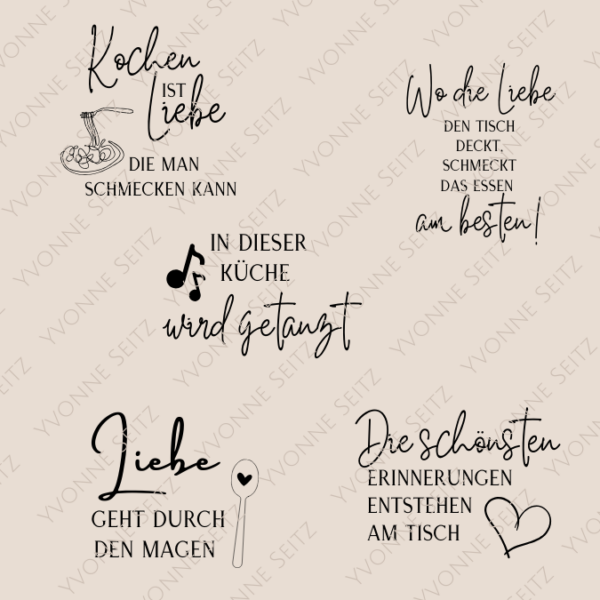 Kochen
IST
Liebe
DIE MAN
SCHMECKEN KANN
Wo die Liebe
DEN TISCH
DECKT,
SCHMECKT
DAS ESSEN
am besten!
IN DIESER
KÜCHE
wird getanzt
Liebe
GEHT DURCH
DEN MAGEN
Die schönsten
ERINNERUNGEN
ENTSTEHEN
AM TISCH
YVONNE SEITZ